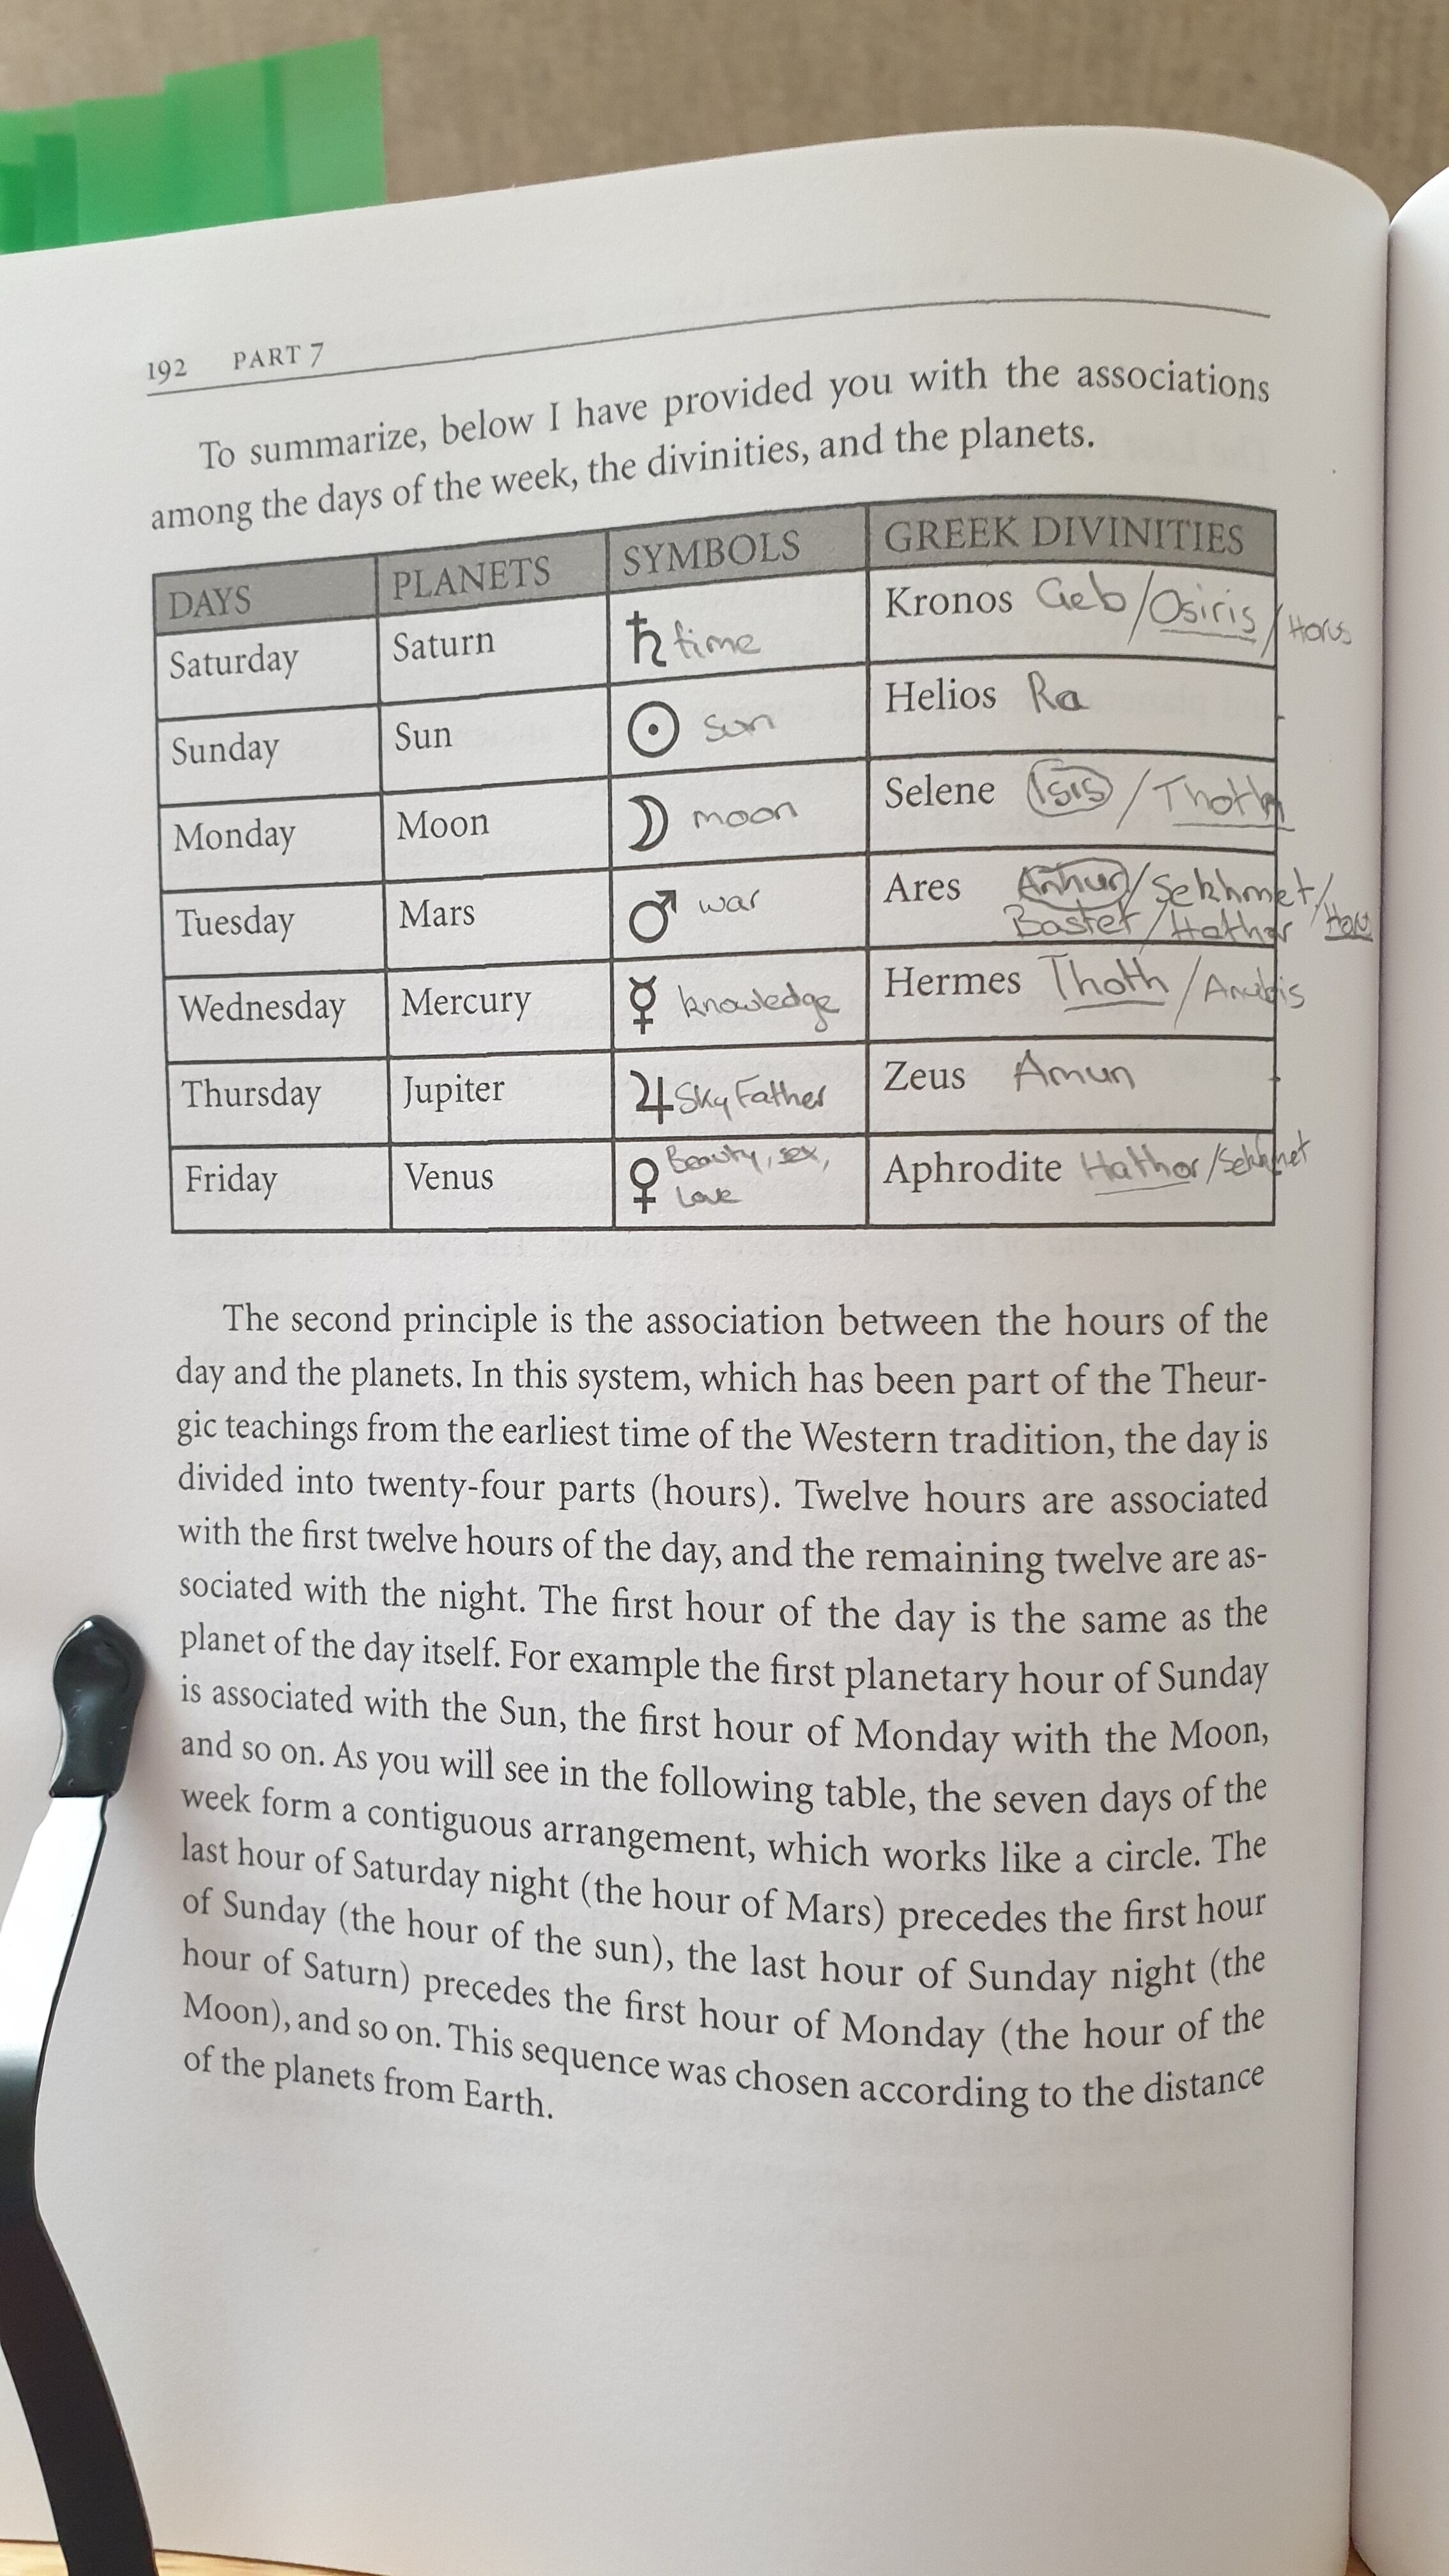 192 PART 7
To summarize, below I have provided you with the associations
among the days of the week, the divinities, and the planets.
DAYS PLANETS SYMBOLS GREEK DIVINITIES
Saturday Saturn ♄ time Kronos Geb/Osiris/Horus
Sunday Sun ☉ sun Helios Ra
Monday Moon ☽ moon Selene Isis/Thoth
Tuesday Mars ♂ war Ares Anhur/Sekhmet/
Bastet/Hathor
Wednesday Mercury ☿ knowledge Hermes Thoth/Anubis
Thursday Jupiter ♃ Sky Father Zeus Amun
Friday Venus ♀ Beauty, sex, Aphrodite Hathor/Sekhmet
Love
The second principle is the association between the hours of the
day and the planets. In this system, which has been part of the Theur-
gic teachings from the earliest time of the Western tradition, the day is
divided into twenty-four parts (hours). Twelve hours are associated
with the first twelve hours of the day, and the remaining twelve are as-
sociated with the night. The first hour of the day is the same as the
planet of the day itself. For example the first planetary hour of Sunday
is associated with the Sun, the first hour of Monday with the Moon,
and so on. As you will see in the following table, the seven days of the
week form a contiguous arrangement, which works like a circle. The
last hour of Saturday night (the hour of Mars) precedes the first hour
of Sunday (the hour of the sun), the last hour of Sunday night (the
hour of Saturn) precedes the first hour of Monday (the hour of the
Moon), and so on. This sequence was chosen according to the distance
of the planets from Earth.